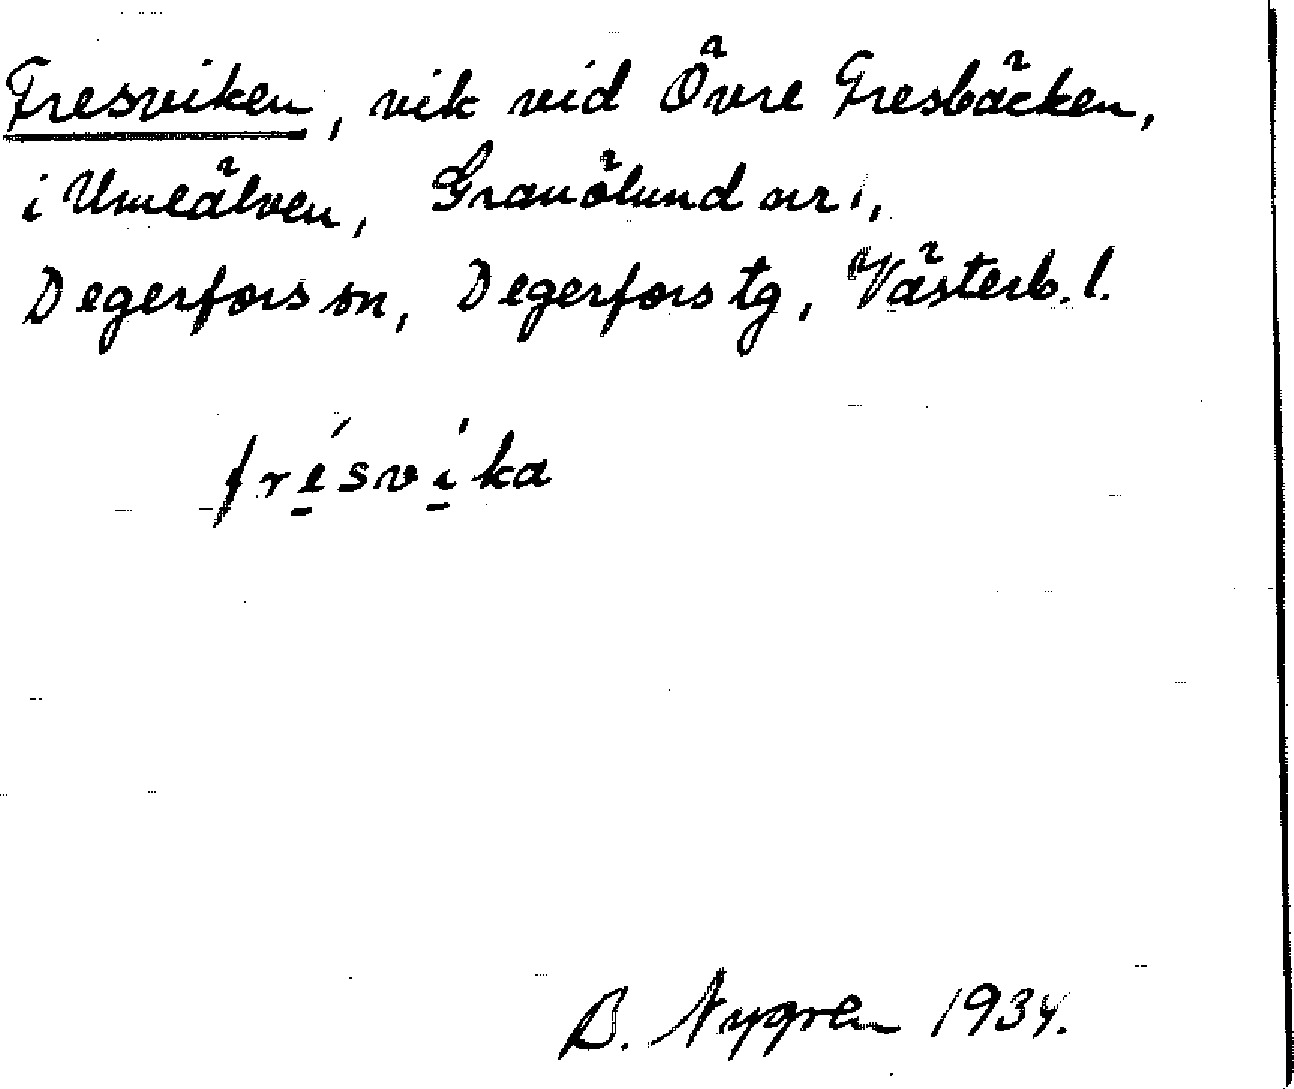 Fresviken, vik vid Övre Fresbäcken,
i Umeälven, Granölund nr 1,
Degerfors sn, Degerfors tg, Västerb. l.
fre̱´svi̱`ka
B. Nygren 1934.